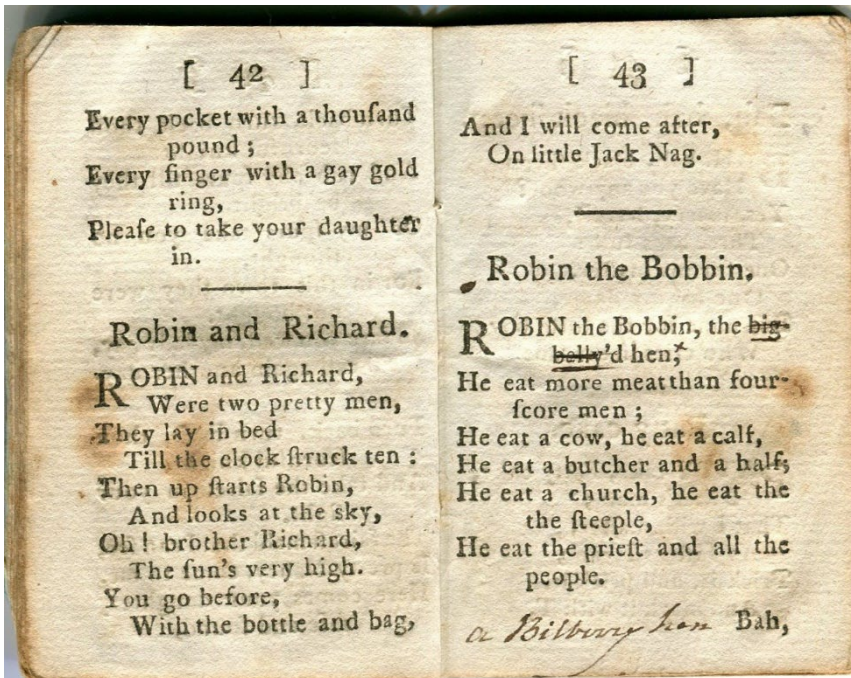 [ 42 ]
Every pocket with a thouſand
pound ;
Every finger with a gay gold
ring,
Pleaſe to take your daughter
in.
Robin and Richard.
ROBIN and Richard,
Were two pretty men,
They lay in bed
Till the clock ſtruck ten :
Then up ſtarts Robin,
And looks at the sky,
Oh ! brother Richard,
The ſun's very high.
You go before,
With the bottle and bag,
[ 43 ]
And I will come after,
On little Jack Nag.
Robin the Bobbin.
ROBIN the Bobbin, the big-
belly'd hen;
He eat more meat than four-
ſcore men ;
He eat a cow, he eat a calf,
He eat a butcher and a half;
He eat a church, he eat the
the ſteeple,
He eat the prieſt and all the
people.
a Bilberry hen Bah,